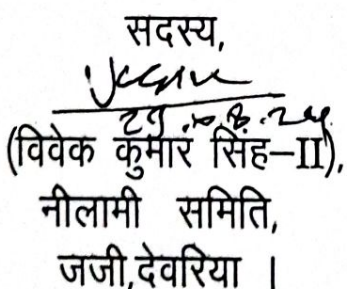 सदस्य,
29.08.24
(विवेक कुमार सिंह–II),
नीलामी समिति,
जजी,देवरिया ।